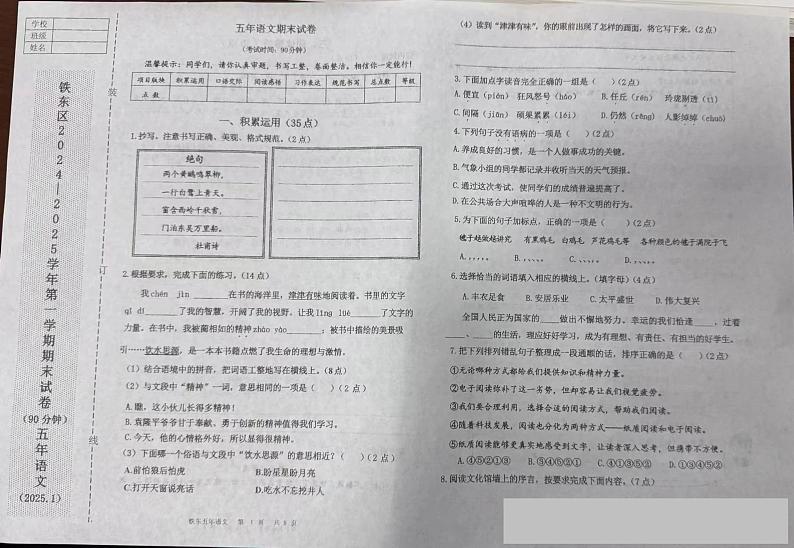 学校
班级
姓名
铁东区2024—2025学年第一学期期末试卷
(90分钟)
五年语文
(2025.1)
装
订
线
五年语文期末试卷
(考试时间：90分钟)
温馨提示：同学们，请你认真审题，书写工整，卷面整洁。相信你一定能行！
项目板块 积累运用 口语交际 阅读感悟 习作表达 规范书写 总点数 等级
点 数
一、积累运用（35点）
1.抄写。注意书写正确、美观、格式规范。（2点）
绝句
两个黄鹂鸣翠柳，
一行白鹭上青天。
窗含西岭千秋雪，
门泊东吴万里船。
杜甫诗
2.根据要求，完成下面的练习。（14点）
我chén jìn ______在书的海洋里，津津有味地阅读着。书里的文字
qǐ dí ______了我的智慧，开阔了我的视野，让我lǐng lüè ______了文字的
力量。在书中，我被蔺相如的精神zhào yào______；被书中描绘的美景吸
引……饮水思源，是一本本书籍点燃了我生命的理想与激情。
（1）结合语境中的拼音，把词语工整地写在横线上。（8点）
（2）与文段中“精神”一词，意思相同的一项是（ ）（2点）
A.瞧，这小伙儿长得多精神！
B.袁隆平爷爷甘于奉献、勇于创新的精神值得我们学习。
C.今天，他的心情格外好，所以显得很精神。
（3）下面哪一个俗语与文段中“饮水思源”的意思相近？（ ）（2点）
A.前怕狼后怕虎 B.盼星星盼月亮
C.打开天窗说亮话 D.吃水不忘挖井人
铁东五年语文 第 1 页 共 8 页
（4）读到“津津有味”，你的眼前出现了怎样的画面，将它写下来。（2点）
3.下面加点字读音完全正确的一组是（ ）（2点）
A.便宜（pián） 狂风怒号（háo） B.任丘（rén） 玲珑剔透（tì）
C.间隔（jiàn） 硕果累累（léi） D.仍然（rāng） 人影绰绰（chuō）
4.下列句子没有语病的一项是（ ）（2点）
A.养成良好的习惯，是一个人做事成功的关键。
B.气象小组的同学都记录并收听当天的天气预报。
C.通过这次考试，使同学们的成绩普遍提高了。
D.在公共场合大声喧哗的人是一种不文明的行为。
5.为下面的句子加标点，正确的一项是（ ）（2点）
毽子越做越讲究 有黑鸡毛 白鸡毛 芦花鸡毛等 各种颜色的毽子满院子飞
6.选择恰当的词语填入相应的横线上。（填字母）（4点）
A.丰衣足食 B.安居乐业 C.太平盛世 D.伟大复兴
全国人民正为国家的____做出不懈地努力。幸运的我们恰逢____，过着
____、____的生活，理应好好学习，成为有理想、有责任、有担当的好学生。
7.把下列排列错乱句子整理成一段通顺的话，排序正确的是（ ）（2点）
①无论哪种方式都给我们提供知识和精神力量。
②电子阅读弥补了这一劣势，但却容易让我们视觉疲劳。
③我们要合理利用，选择合适的阅读方式，帮助我们阅读。
④随着科技发展，阅读也分化为两种方式——纸质阅读和电子阅读。
⑤纸质阅读能够更真实地感受到文字，让读者深入思考，但携带不方便。
A.④⑤②①③ B.⑤④②①③ C.④①③⑤② D.①③④⑤②
8.阅读文化馆墙上的序言，按要求完成下面内容。（7点）